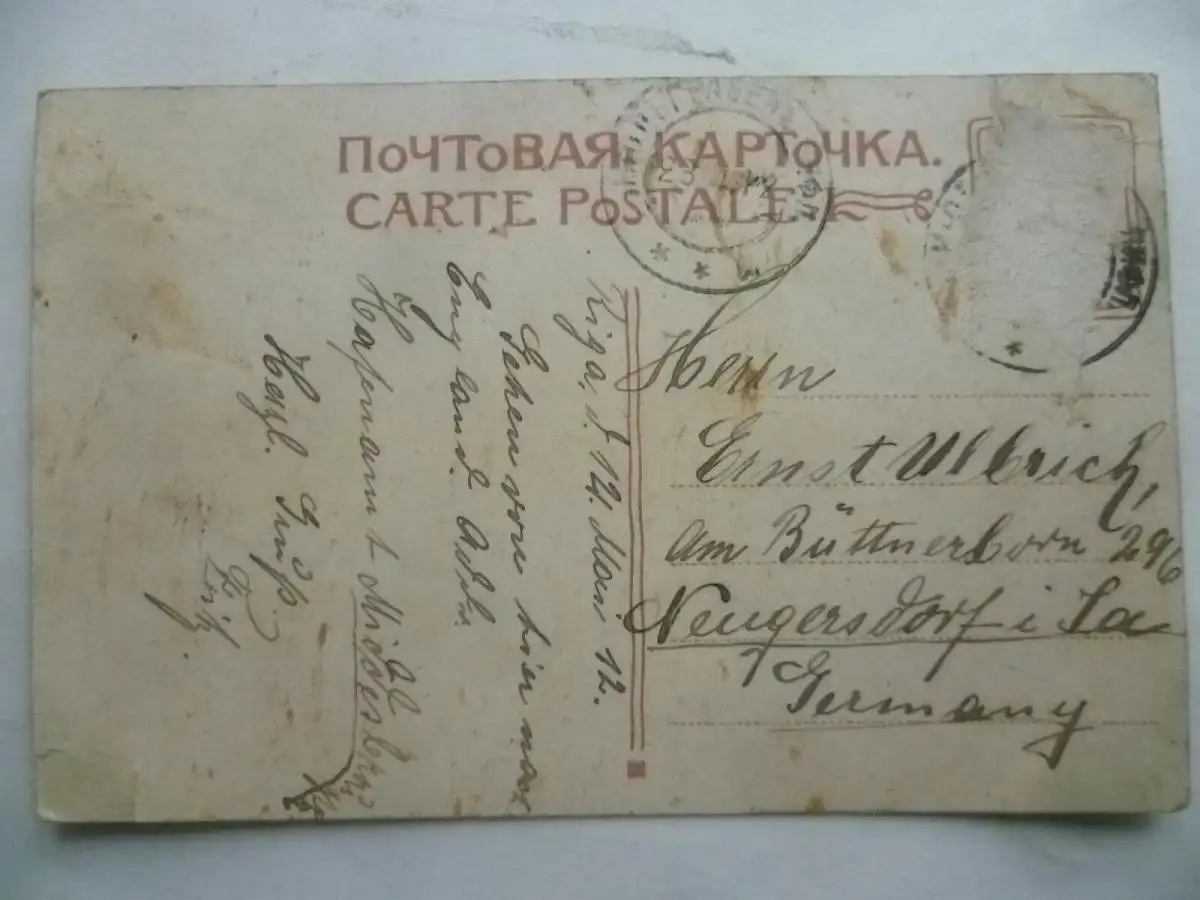 ПОЧТОВАЯ КАРТОЧКА.
CARTE POSTALE
Riga, d. 12. Mai 12.
Gehen von hier nach
England. Adr.
Hafenamt Middlesbro
Herzl. Gruß
Fritz.
Herrn
Ernst Ulbrich,
am Büttnerborn 296
Neugersdorf i Sa
Germany